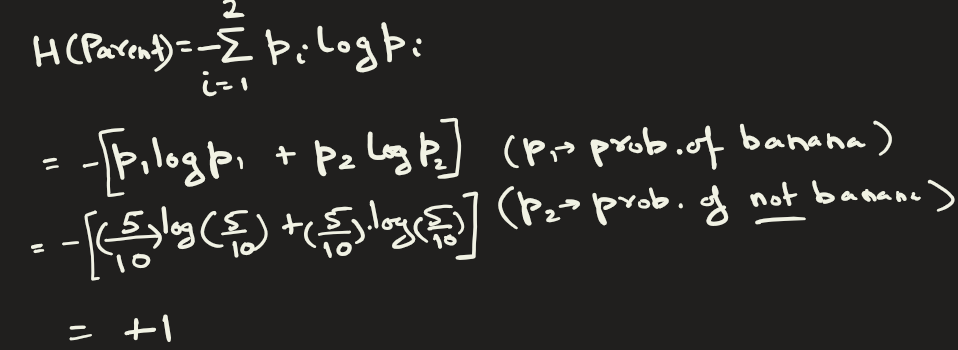 H(Parent)=-∑_{i=1}^{2} p_i log p_i
= -[p_1 log p_1 + p_2 log p_2] (p_1→ prob. of banana)
= -[(5/10) log(5/10) + (5/10).log(5/10)] (p_2→ prob. of not banana)
= +1